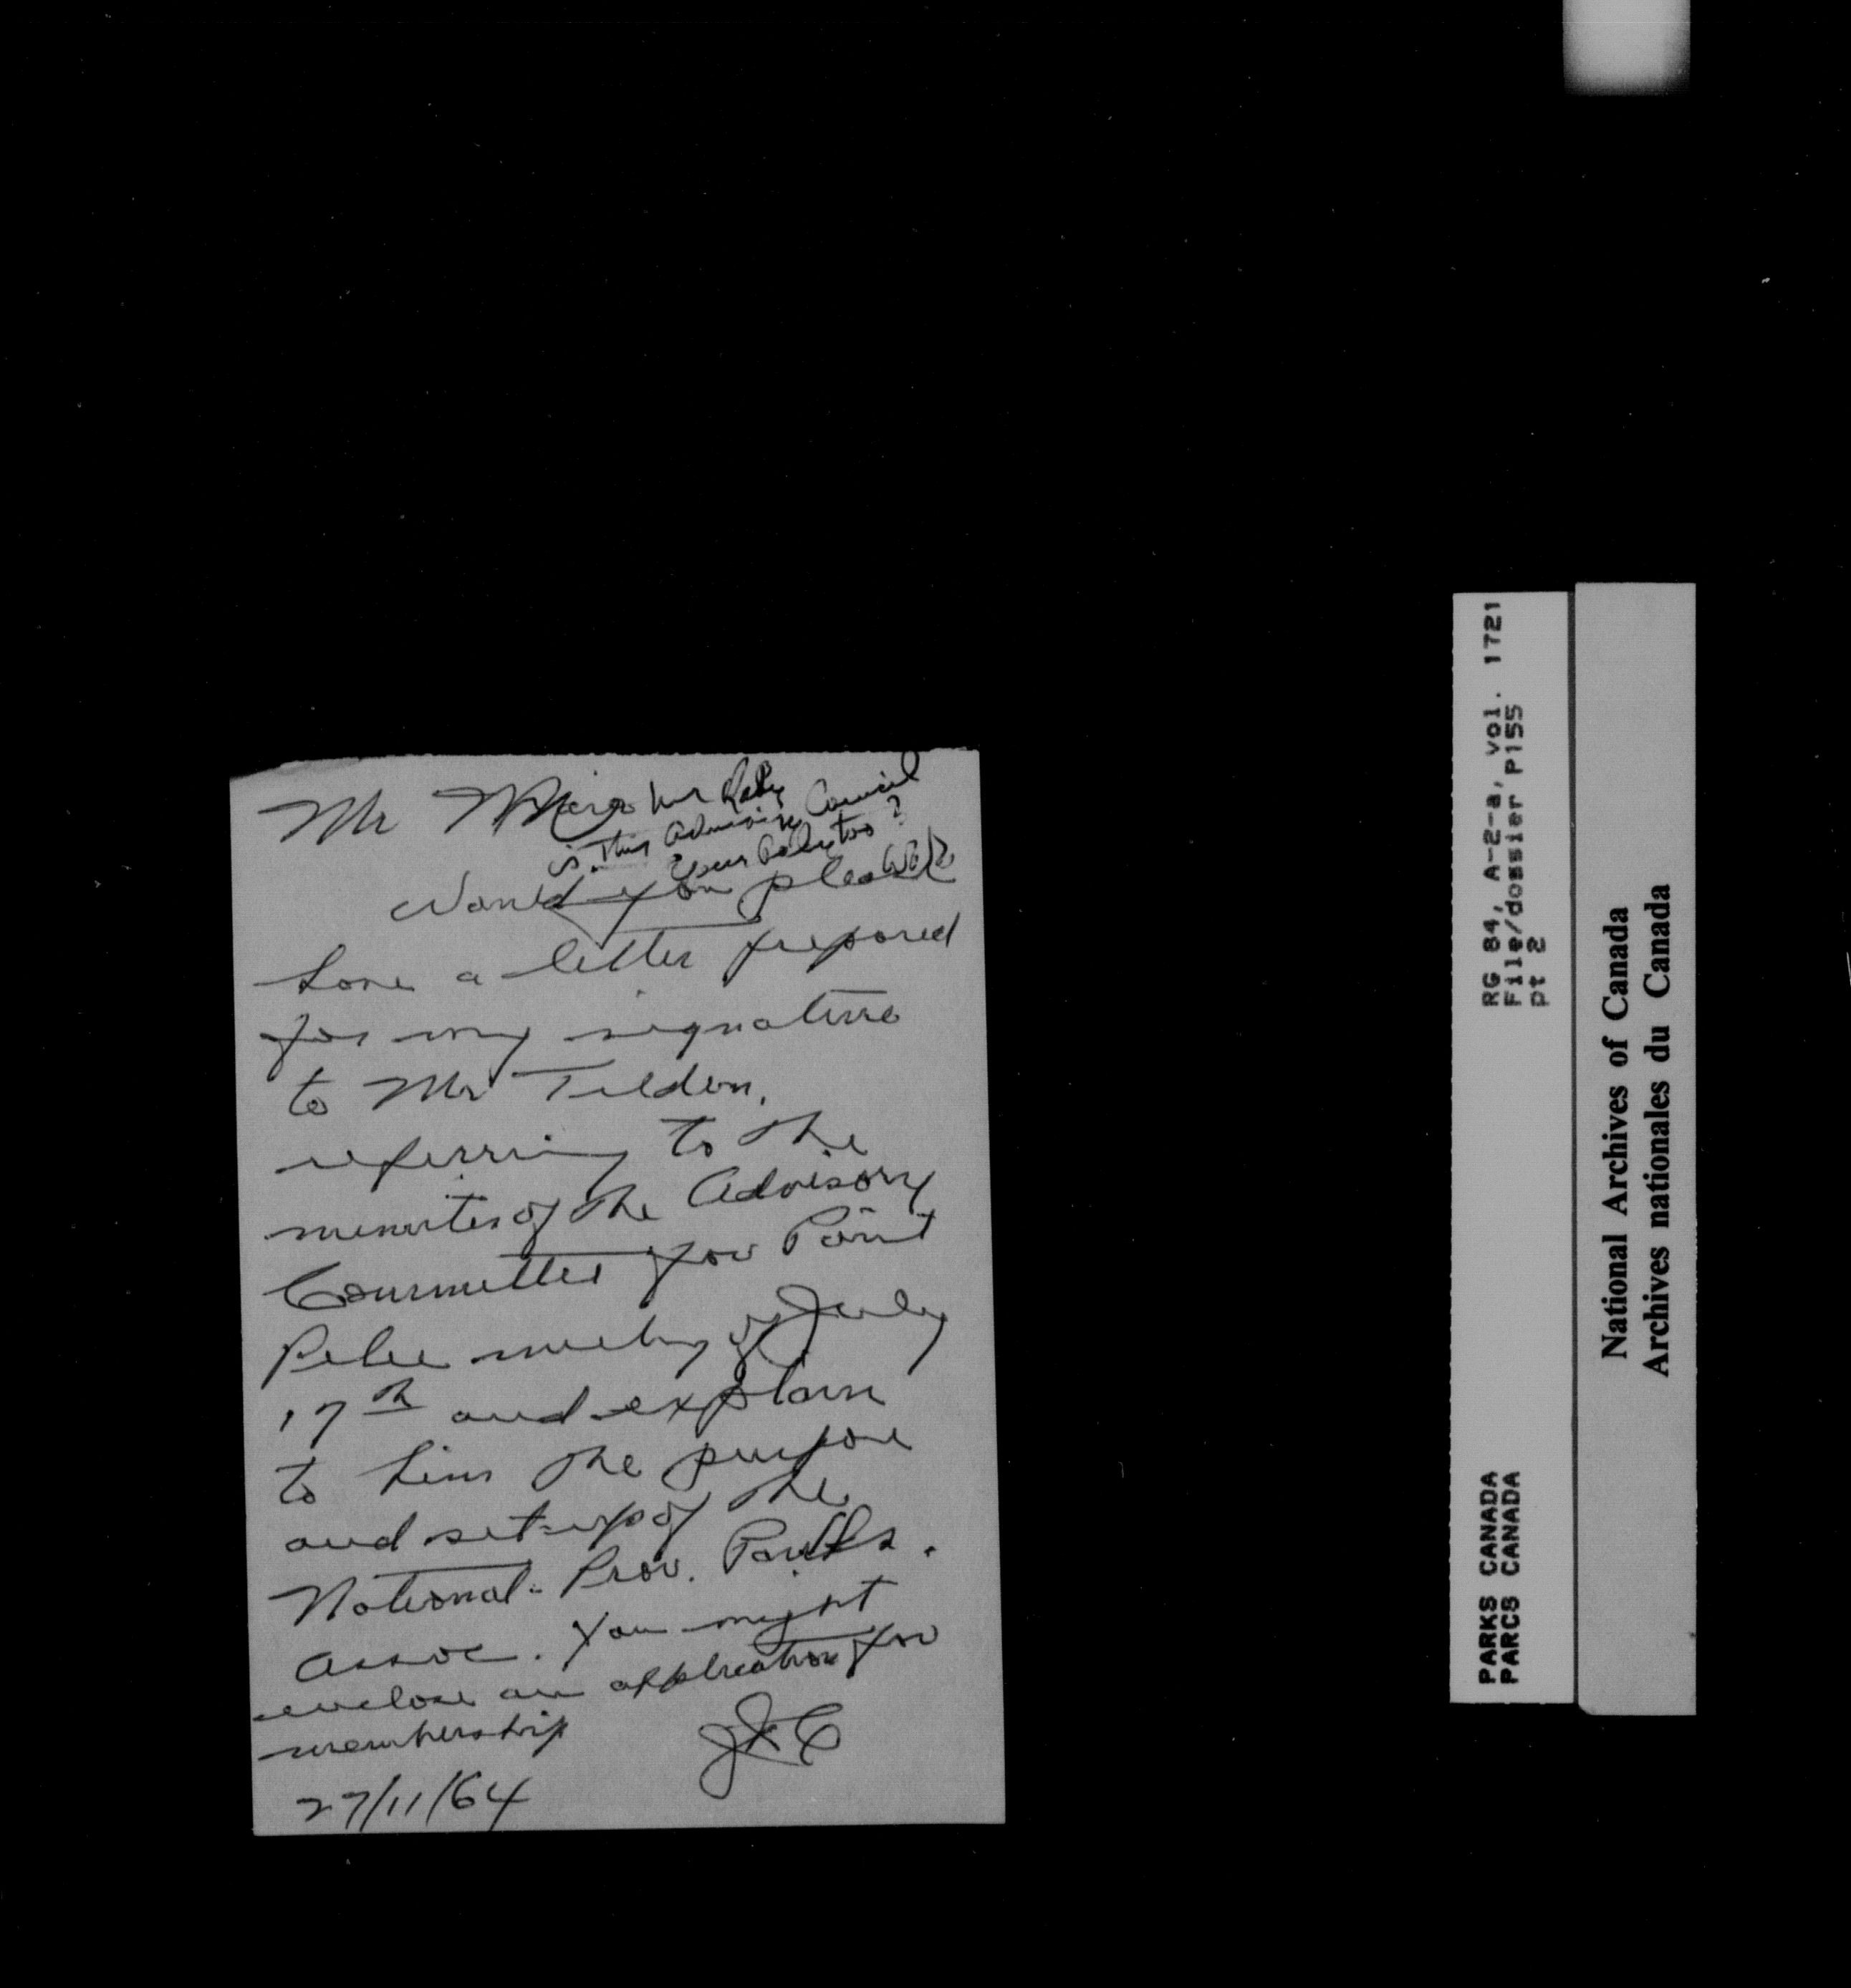 Mr
is this Advisory Council
your too?
Would you please
have a letter prepared
for my signature
to Mr Tilden,
referring to the
minutes of the Advisory
Committee for Point
Pelee meeting of July
17th and explain
to him the purpose
and set-up of the
National- Prov. Parks.
Assoc. You might
enclose an application for
membership
27/11/64
RG 84, A-2-a, vol. 1721
File/dossier P155
pt 2
PARKS CANADA
PARCS CANADA
National Archives of Canada
Archives nationales du Canada